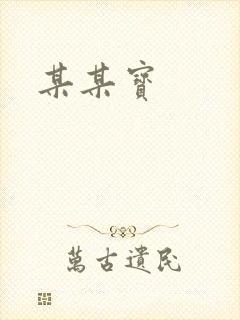 某某寶
萬古遺民